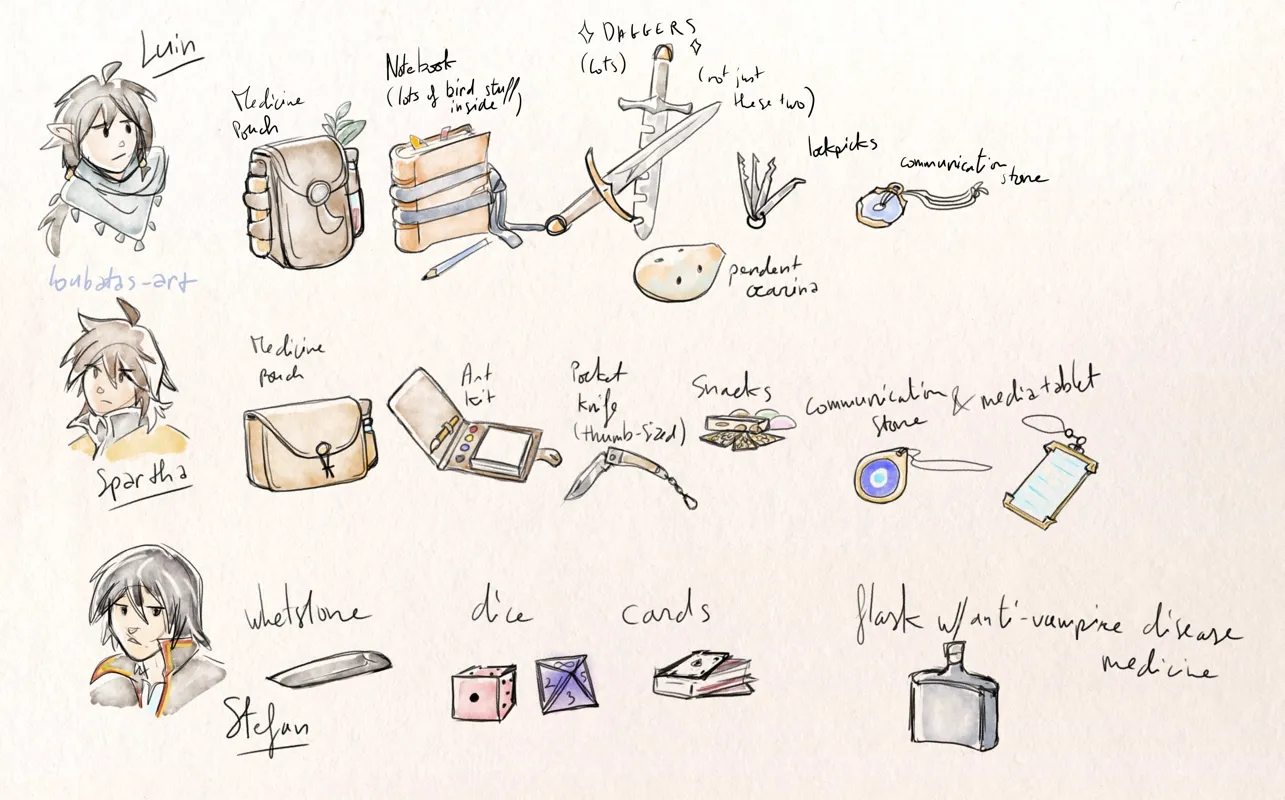 Luin
Medicine
Pouch
Notebook
(lots of bird stuff
inside)
DAGGERS
(lots)
(not just
these two)
lockpicks
communication
stone
pendent
ocarina
loubatas-art
Spartha
Medicine
pouch
Art
kit
Pocket
knife
(thumb-sized)
Snacks
communication & media tablet
stone
Stefan
whetstone
dice
2 5
3
cards
flask w/ anti-vampire disease
medicine